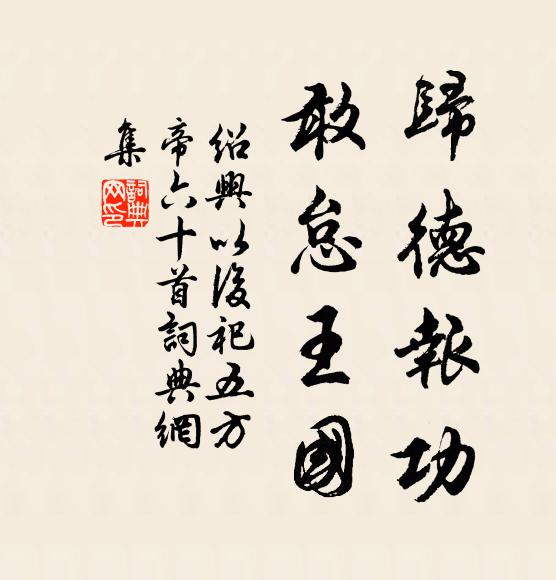 歸德報功
敢怠王國
紹興以後祀五方
帝六十首詞典網
集
詞典
网印